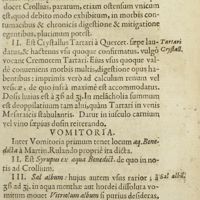 docet Crollius, paratum, etiam ostensum vidicum
est, quod debito modo exhibitum, in morbis con-
tumacibus & chronicis digestione & mitigatione
egentibus, plurimum potest.
II. Est Crystallus Tartari à Quercet. sæpe lau-
datus, & hactenus vsu quoque constitutus, vulgò
vocant Cremorem Tartari. Eius vsus quoque val-
dè conueniens morbis multis, digestioni opus ha-
bentibus, imprimis verò ad calculum renum ve-
sicæ: de quo infrà maximè est accommodatus.
Dosis huius est à ʒß ad ʒj. In melicholia summum
est deoppilatiuum tam alui, quàm Tartari in venis
Mesaraicis stabulantis. Datur in iusculo carnium
vel vino sæpius dosin reiterando.
VOMITORIA.
Inter Vomitoria primum tenet locum aq. Bene-
dicta à Martin. Rulando propriè ita dicta.
II. Est Syrupus ex aqua Benedict. de quo in no-
tis ad Crollium.
III. Sal album: huius autem vsus rarior;
ʒß ad ʒj. in aqua menthæ aut hordei dissoluta vo-
mitum mouet Vitriolum album si purius desideras,
Tartari
Crystall.
Sal albū